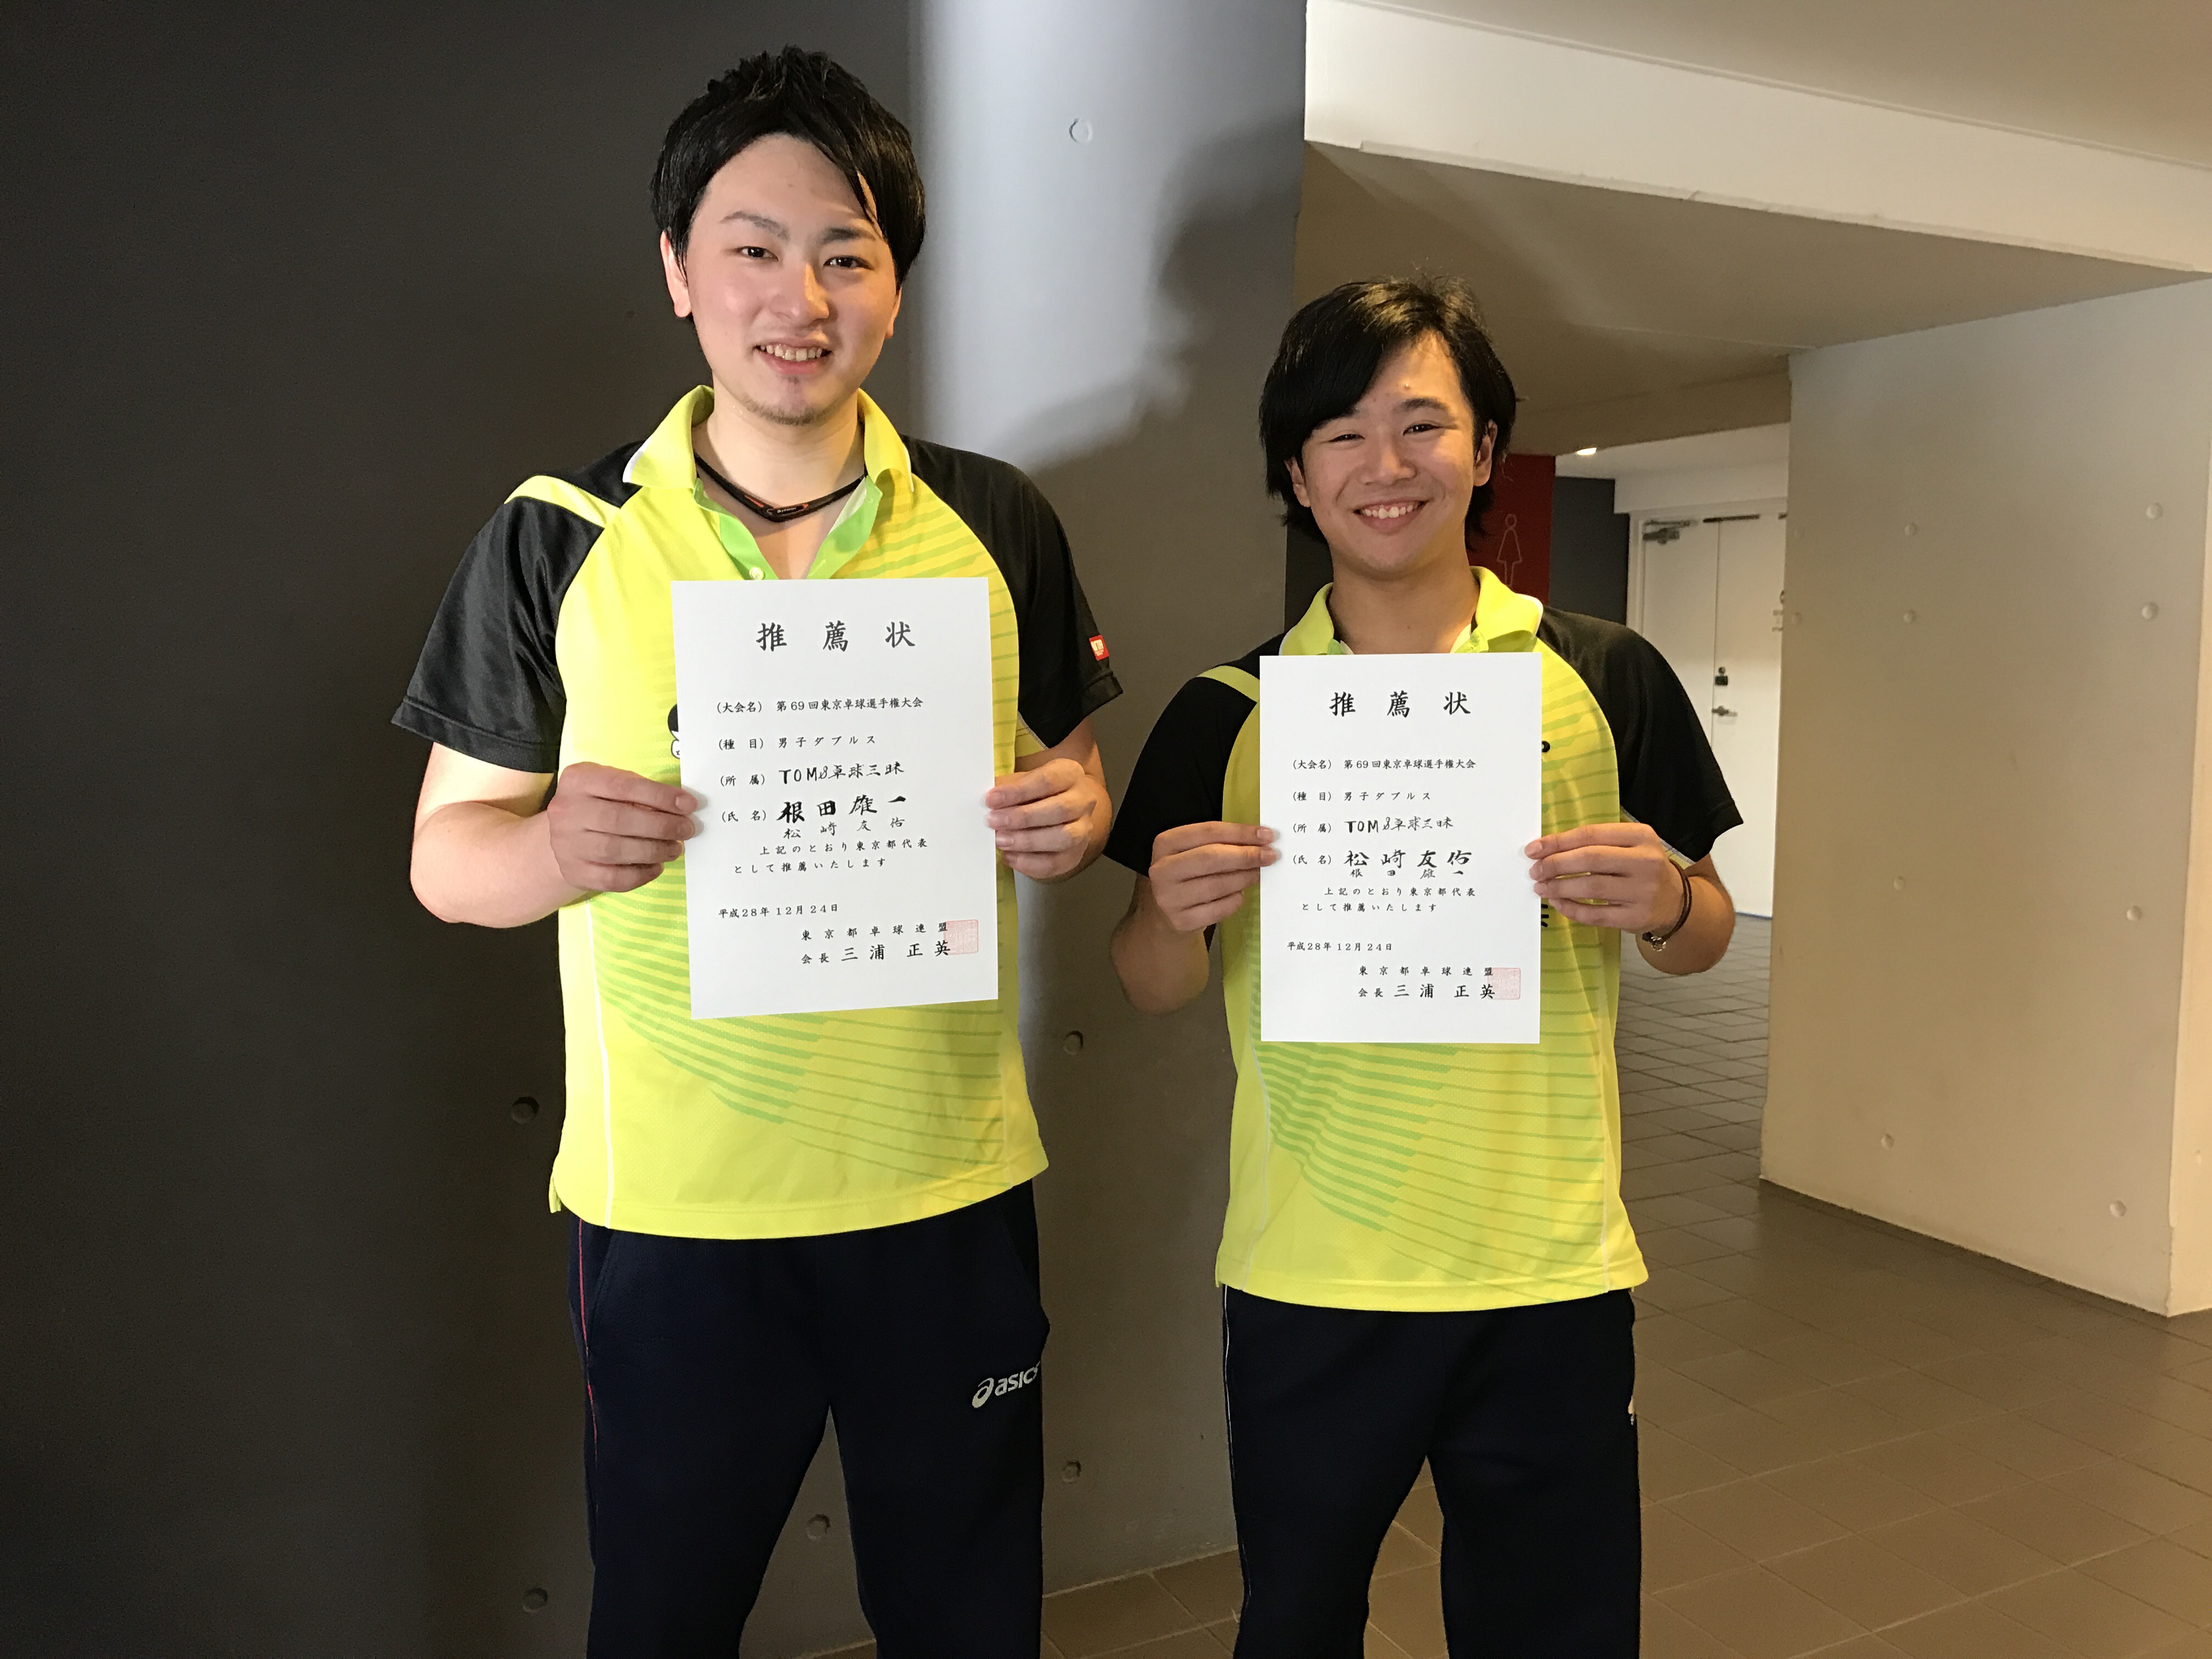 推薦状
（大会名） 第69回東京卓球選手権大会
（種 目） 男子ダブルス
（所 属） TOM&卓球三昧
（氏 名） 根田雄一
松﨑友佑
上記のとおり東京都代表
として推薦いたします
平成28年12月24日
東京都卓球連盟
会長 三浦 正英
asics
推薦状
（大会名） 第69回東京卓球選手権大会
（種 目） 男子ダブルス
（所 属） TOM&卓球三昧
（氏 名） 松﨑友佑
根田雄一
上記のとおり東京都代表
として推薦いたします
平成28年12月24日
東京都卓球連盟
会長 三浦 正英